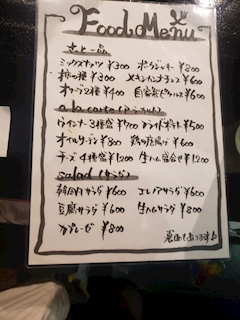 Food Menu
ミックスナッツ ¥300 ビーフジャーキー ¥800
柿の種 ¥300 メキシカンナチョス ¥600
オリーブ2種 ¥400 自家製ピクルス ¥600
a la carte (アラカルト)
ウインナー3種盛 ¥700 フライドポテト ¥500
オイルサーディン ¥800 鶏の唐揚げ ¥600
チーズ4種盛 ¥1200 生ハム盛合せ ¥1200
salad (サラダ)
韓国風サラダ ¥600 コンブサラダ ¥600
豆腐サラダ ¥600 生ハムサラダ ¥800
カプレーゼ ¥800
裏面もあります♪